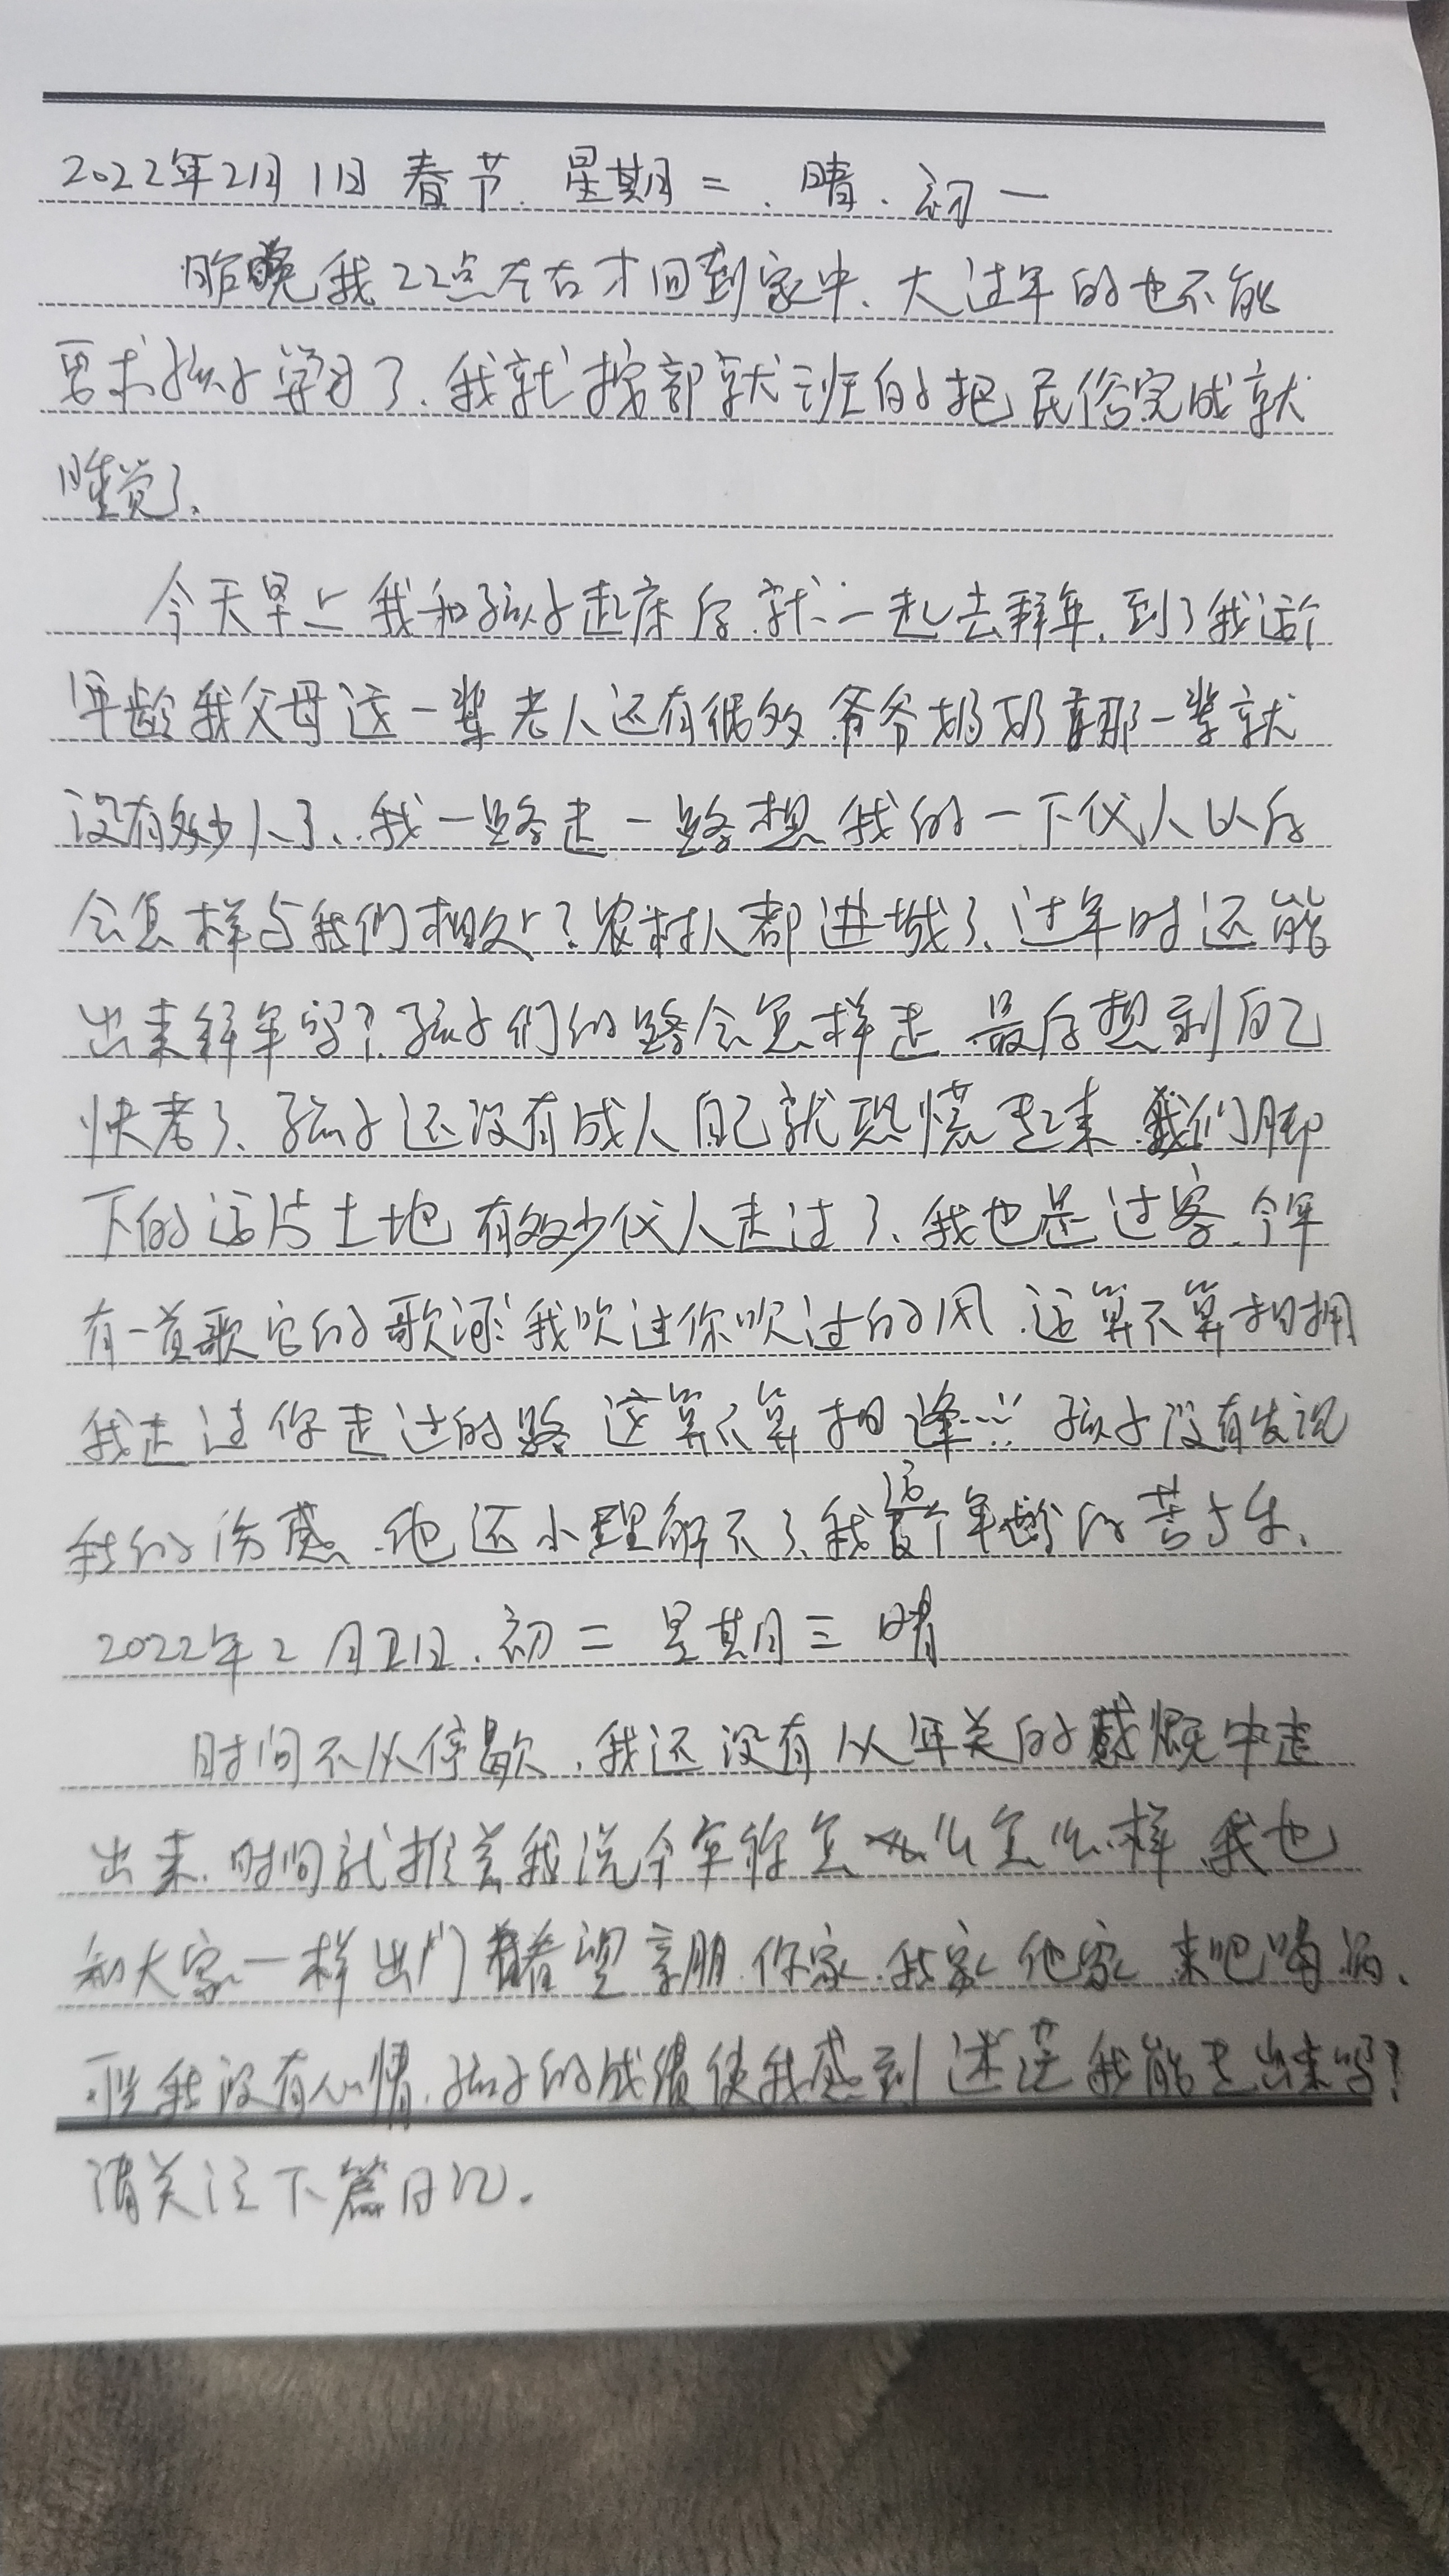 2022年2月1日 春节.星期二.晴.初一
昨晚我22点左右才回到家中、大过年的也不能
要求孩子学习了、我就按部就班的把民俗完成就
睡觉了、
今天早上我和孩子起床后.就一起去拜年,到了我这个
年龄我父母这一辈老人还有很多.爷爷奶奶那一辈就
没有多少人了、我一路走一路想我的一下代人以后
会怎样与我们相处?农村人都进城了、过年时还能
出来拜年吗?孩子们的路会怎样走.最后想到自己
快老了、孩子还没有成人自己就恐慌起来.我们脚
下的这片土地有多少代人走过了、我也是过客.今年
有一首歌它的歌词:我吹过你吹过的风.这算不算相拥
我走过你走过的路.这算不算相逢…… 孩子没有发现
我的伤感.他还小理解不了、我这个年龄的苦与乐、
2022年2月2日.初二 星期三 晴
时间不从停歇.我还没有从年关的感慨中走
出来.时间就推着我说今年你怎么怎么样.我也
和大家一样出门看望亲朋.你家.我家他家.来吧喝酒、
可我没有心情.孩子的成绩使我感到迷茫我能走出来吗?
请关注下篇日记.